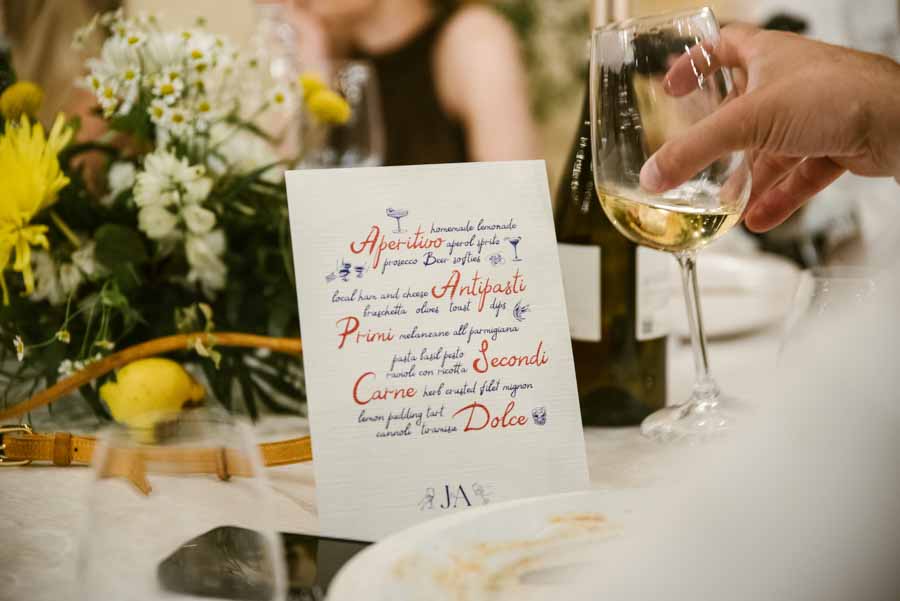 homemade lemonade
Aperitivo aperol spritz
prosecco Beer softies
local ham and cheese Antipasti
bruschetta olives toast dips
Primi melanzane all parmigiana
pasta basil pesto Secondi
ravioli con ricotta
Carne herb crusted filet mignon
lemon pudding tart
cannoli tiramisu Dolce
JA